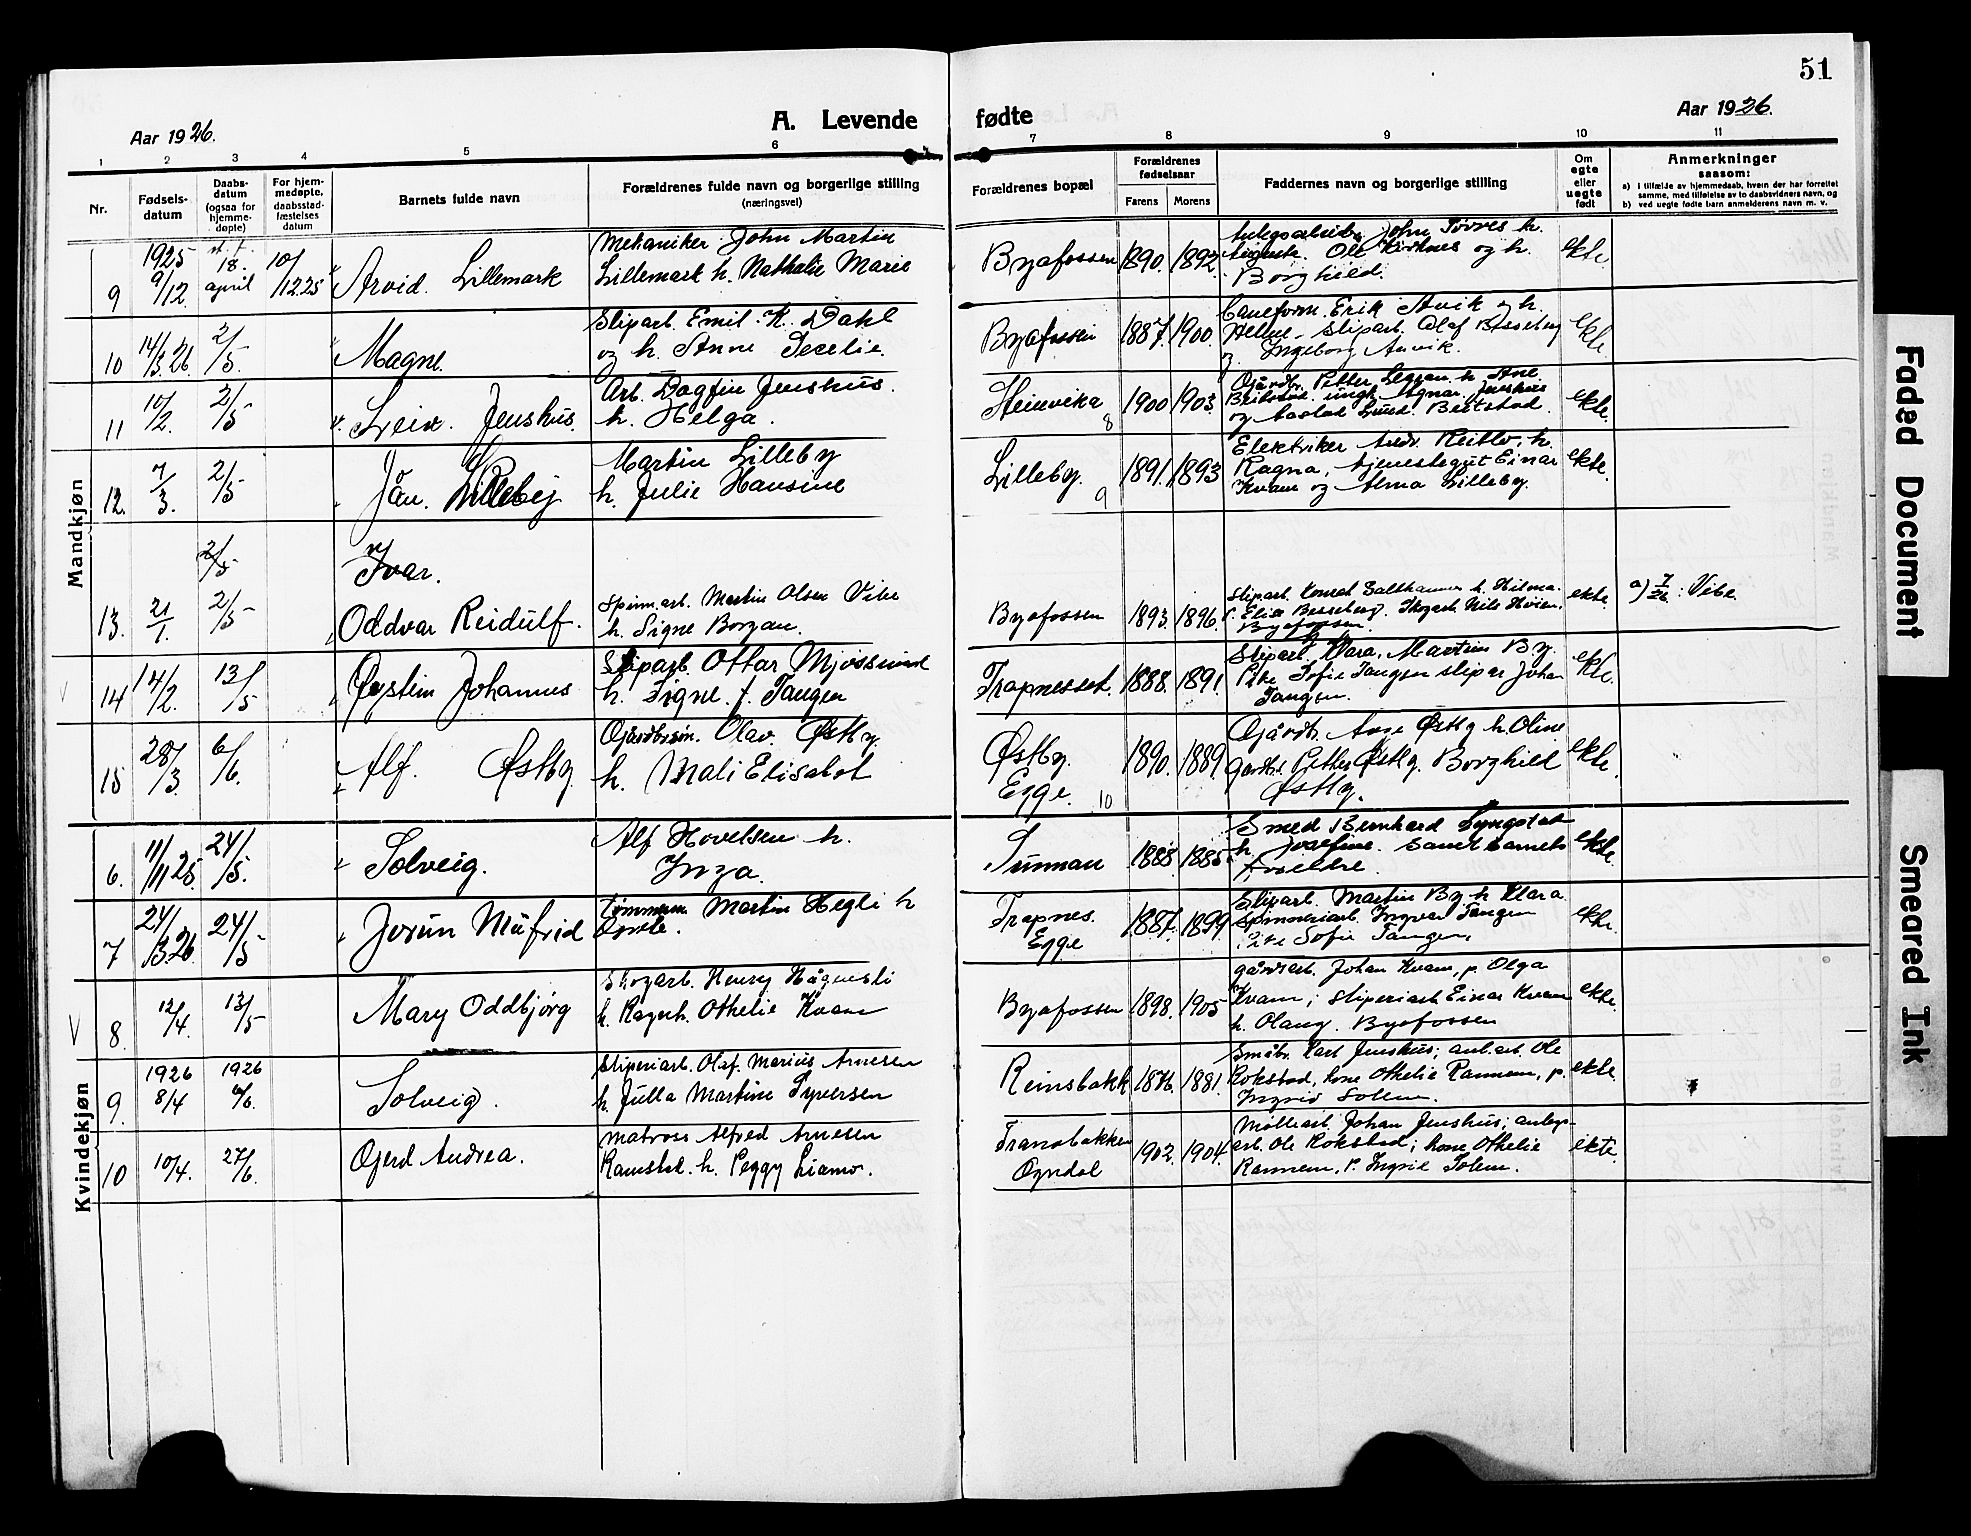 51
Aar 1926.
A. Levende
fødte
Aar 1926.
1 2 3 4 5 6 7 8 9 10 11
Nr.
Fødsels-
datum
Daabs-
datum
(ogsaa for
hjemme-
døpte)
For hjem-
medøpte,
daabsstad-
fæstelses
datum
Barnets fulde navn
Forældrenes fulde navn og borgerlige stilling
(næringsvei)
Forældrenes bopæl
Forældrenes
fødselsaar
Farens Morens
Faddernes navn og borgerlige stilling
Om
egte
eller
uegte
født
Anmerkninger
saasom:
a) i tilfælde av hjemmedaab, hvem der har forrettet
samme, med tilføielse av to daabsvidners navn, og
b) ved uegte fødte barn anmelderens navn m. v.
Mandkjøn
9 1925 9/12 18. april 10/12.25 Arvid. Lillemark
Mekaniker John Martin
Lillemark h. Nathalie Marie
Byafossen 1890. 1892.
John h.
Ole Kirknes og h.
Borghild.
ekte
10 14/3.26. 2/5. Magne.
Sliparb. Emil. K. Dahl
og h. Anne Secelie.
Byafossen 1887. 1900.
Erik Aavik og h.
sliparb. Olaf Besseberg
og Ingeborg Aavik.
ekte
11 10/2. 2/5 Leix. Jenshus.
Arb. Dagfin Jenshus.
h. Helga.
Heinvika 8 1900 1903.
Gårdbr. Petter h. Ane
Agnar Jenshus
og Aaslad Beitstad.
ekte.
12. 7/3. 2/5 Jån. Lilleby
Martin Lilleby
h. Julie Hansine
Lilleby. 9 1891. 1893
Elektriker Andr. Reitlo, h.
Ragna, tjenestegut Einar
Kvam og Alma Lilleby.
ekte.
2/5 Ivar.
13. 21/1. 2/5 Oddvar Reidulf.
Spinn.arb. Martin Olsen Vibe
h. Signe Borgan.
Byafossen 1893. 1896.
Sliparb. Konrad h. Hilma.
p. Elise Besseberg. Skogarb. Nils
Byafossen.
ekte a) 7/26: Vibe
14 14/2. 13/5 Øystein Johannes
Sliparb. Ottar Mjøssund
h. Signe. f. Tangen
Trapnesset. 1888. 1891.
Sliparb. Klara, Martin By.
Pike Sofie Tangen slipar Johan
Tangen.
ekte.
15 28/3. 6/6. Alf. Østby.
Gårdbrsøn. Olav. Østby.
h. Mali Elisabet
Østby.
Egge. 10 1890. 1889
Gårdb. Østby h. Oline
Petter Østby. Borghild
Østby.
ekte.
Kvindekjøn
6. 11/11 25. 24/5. Solveig.
Alf Hovelsen h.
Inga.
Sunnan 1888. 1885
Smed Bernhard Lyngstad
h. Josefine. samt barnets
forældre.
ekte.
7 24/3.26 24/5 Jorun Mufrid
Tømmerm. Martin Hegli h
Gyrete.
Trapnes.
Egge 1887. 1899
Sliparb. Martin By. h Klara
Spinneriarb. Ingvar Tangen
Pike Sofie Tangen.
ekte.
8. 12/4. 13/5 Mary Oddbjørg
Skogarb. Henry Hågensli
h. Ragnh. Othelie Kvam
Byafossen 1898. 1905
gårdsarb. Johan Kvam, p. Olga
Kvam; sliperiarb Einar Kvam
h. Olaug. Byafossen
ekte.
9. 1926 8/4 1926 6/6. Solveig.
Sliperiarb. Olaf. Marius Arnesen
h. Julla Martine Syversen
Reinsbakk 1876. 1881.
Småbr. Karl Jenshus; anl.arb. Ole
Rokstad, kone Othelie Rannem, p.
Ingrid Solem.
ekte.
10 10/4. 27/6. Gjerd Andrea.
Matross Alfred Arnesen
Ramstad. h. Peggy Liamo.
Tranabakken
Ogndal 1902. 1904.
Møllearb. Johan Jenshus; anlegs-
arb. Ole Rokstad; kone Othelie
Rannem, p. Ingrid Solem.
ekte.
Faded Document
Smeared Ink